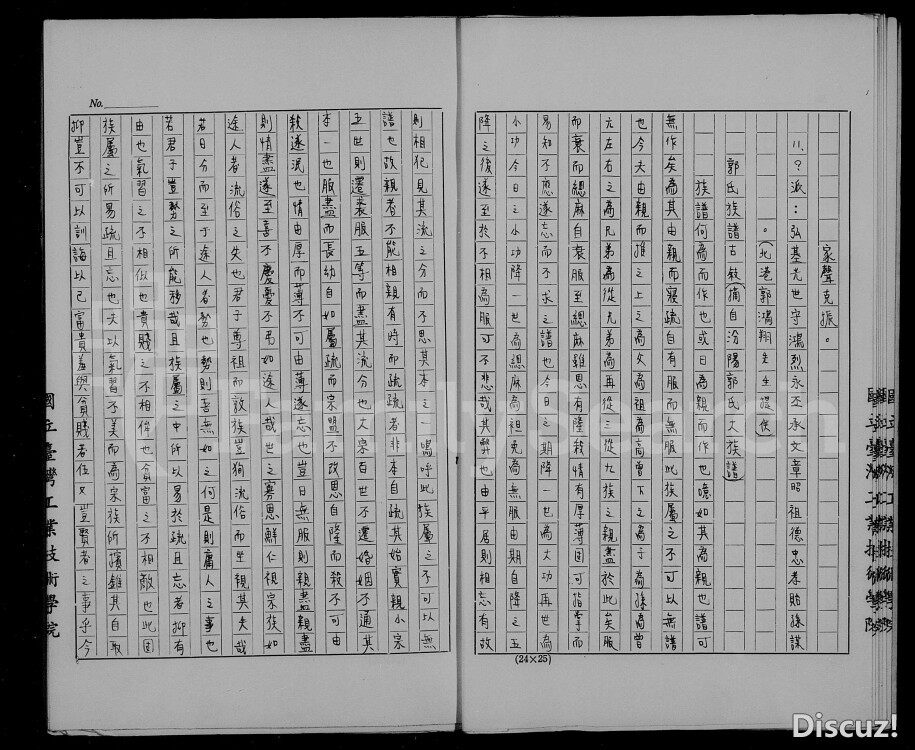 家聲克振。
11、?派：弘基光世守鴻烈永丕承文章昭祖德忠孝貽孫謀
。（北港郭鴻翔先生提供
郭氏族譜古敘（摘自汾陽郭氏大族譜）
族譜何為而作也或曰為親而作也噫如其為親也譜可
無作矣為其由親而寢疏自有服而無服此族屬之不可以無譜
也今夫由親而推之上之為父為祖為高曾下之為子為孫為曾
元左右之為兄弟為從兄弟為再從三從九族之親盡於此矣服
而衰而緦麻自衰服至緦麻雖恩有隆殺情有厚薄固可指掌而
易知不應遂忘而不求之譜也今日之期降一也為大功再世為
小功今日之小功降一世為緦麻為祖免為無服由期自降之五
降之後遂至於不相為服可不悲哉其弊也由乎居則相忘有故
No.
則相犯見其流之分而不思其本之一嗚呼此族屬之不可以無
譜也故親者不能相親有時而疏疏者非本自疏其始實親小宗
五世則遷喪服五等而盡其流分也大宗百世不遷婚姻不通其
本一也服盡而長幼自如屬疏而宗盟不改恩自隆而殺不可由
殺遂泯也情由厚而薄不可由薄遂忘也豈曰無服則親盡親盡
則情盡遂至喜不慶憂不吊如途人哉世之寡恩鮮仁視宗族如
途人者流俗之失也君子尊祖而敦族豈狥流俗而坐視其失哉
若日分而至于途人者勢也勢則吾無如之何是則庸人之事也
若君子豈勢之所能移哉且族屬之中所以易於疏且忘者抑有
由也氣習之不相似也貴賤之不相侔也貧富之不相敵也此固
族屬之所易疏且忘也夫以氣習不美而為宗族所擯雖其自取
抑豈不可以訓誨以已富貴羞與貧賤者伍又豈賢者之事乎今
(24×25)
國立臺灣工業技術學院
Discuz!